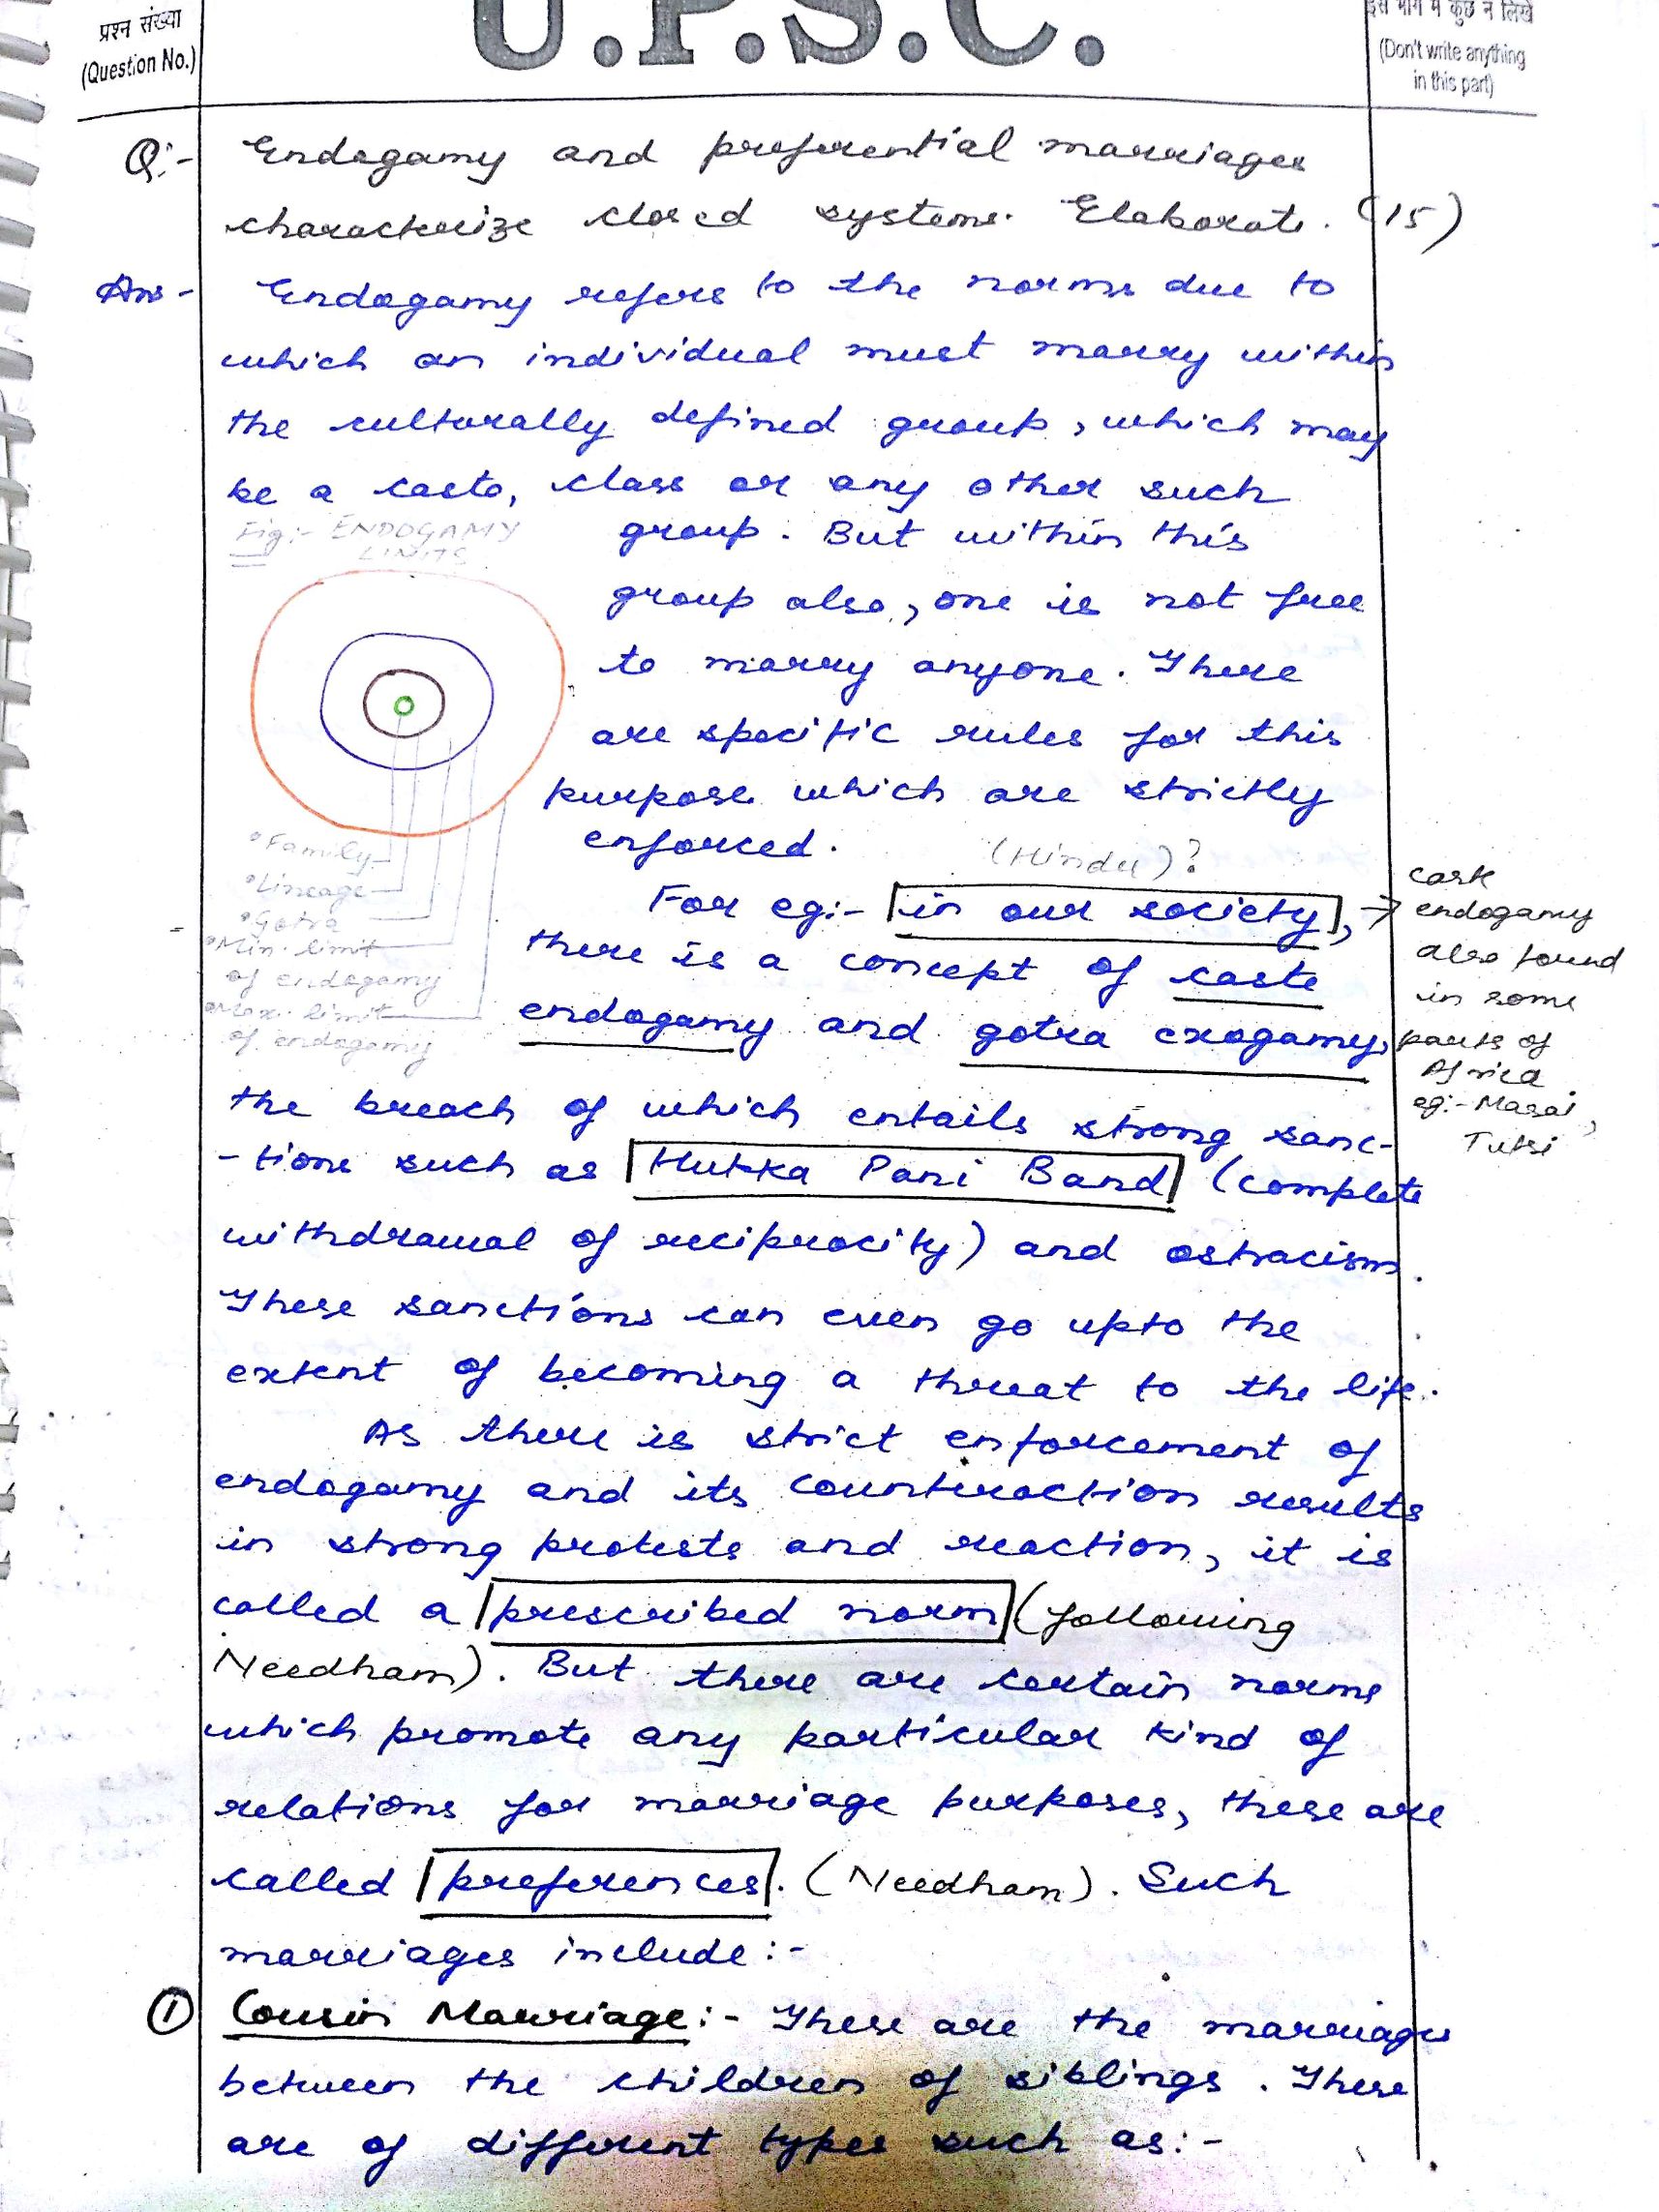 प्रश्न संख्या
(Question No.)
U.P.S.C.
इस भाग में कुछ न लिखें
(Don't write anything
in this part)
Q:- Endogamy and preferential marriages
characterize closed systems. Elaborate. (15)
Ans- Endogamy refers to the norms due to
which an individual must marry within
the culturally defined group, which may
be a caste, class or any other such
Fig:- ENDOGAMY
LIMITS
group. But within this
group also, one is not free
to marry anyone. There
are specific rules for this
purpose which are strictly
enforced.
• Family
• Lineage
• Gotra
• Min. limit
of endogamy
• Max. limit
of endogamy
(Hindu)?
For eg:- in our society, →
there is a concept of caste
endogamy and gotra exogamy,
caste
endogamy
also found
in some
parts of
Africa
eg:- Masai,
Tutsi
the breach of which entails strong sanc-
-tions such as Hukka Pani Band (complete
withdrawal of reciprocity) and ostracism.
These sanctions can even go upto the
extent of becoming a threat to the life.
As there is strict enforcement of
endogamy and its counteraction results
in strong protests and reaction, it is
called a prescribed norm (following
Needham). But there are certain norms
which promote any particular kind of
relations for marriage purposes, these are
called preferences. (Needham). Such
marriages include:-
① Cousin Marriage:- These are the marriages
between the children of siblings. These
are of different types such as:-